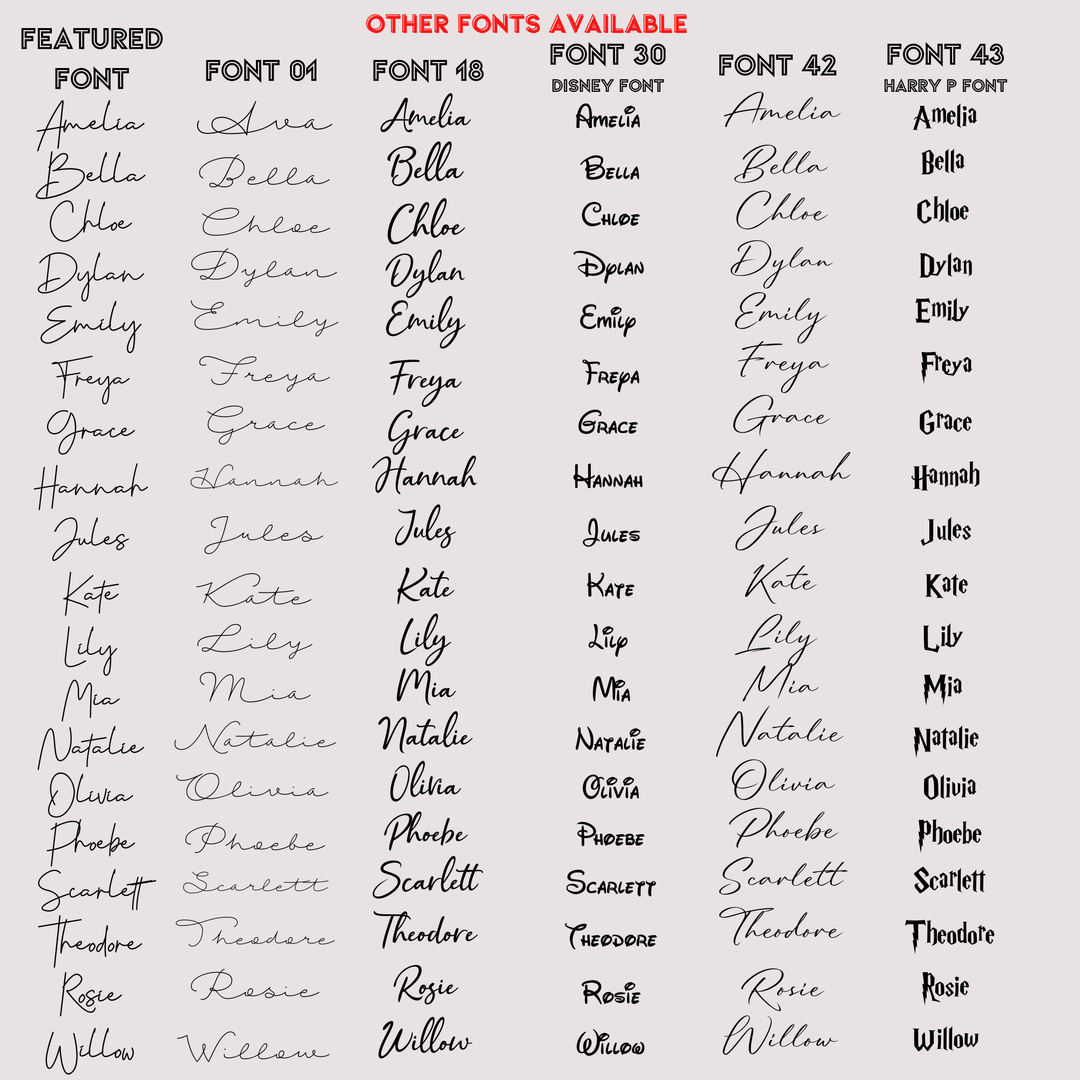 OTHER FONTS AVAILABLE
FEATURED FONT FONT 01 FONT 18 FONT 30 FONT 42 FONT 43
DISNEY FONT HARRY P FONT
Amelia Ava Amelia Amelia Amelia Amelia
Bella Bella Bella Bella Bella Bella
Chloe Chloe Chloe Chloe Chloe Chloe
Dylan Dylan Dylan Dylan Dylan Dylan
Emily Emily Emily Emily Emily Emily
Freya Freya Freya Freya Freya Freya
Grace Grace Grace Grace Grace Grace
Hannah Hannah Hannah Hannah Hannah Hannah
Jules Jules Jules Jules Jules Jules
Kate Kate Kate Kate Kate Kate
Lily Lily Lily Lily Lily Lily
Mia Mia Mia Mia Mia Mia
Natalie Natalie Natalie Natalie Natalie Natalie
Olivia Olivia Olivia Olivia Olivia Olivia
Phoebe Phoebe Phoebe Phoebe Phoebe Phoebe
Scarlett Scarlett Scarlett Scarlett Scarlett Scarlett
Theodore Theodore Theodore Theodore Theodore Theodore
Rosie Rosie Rosie Rosie Rosie Rosie
Willow Willow Willow Willow Willow Willow